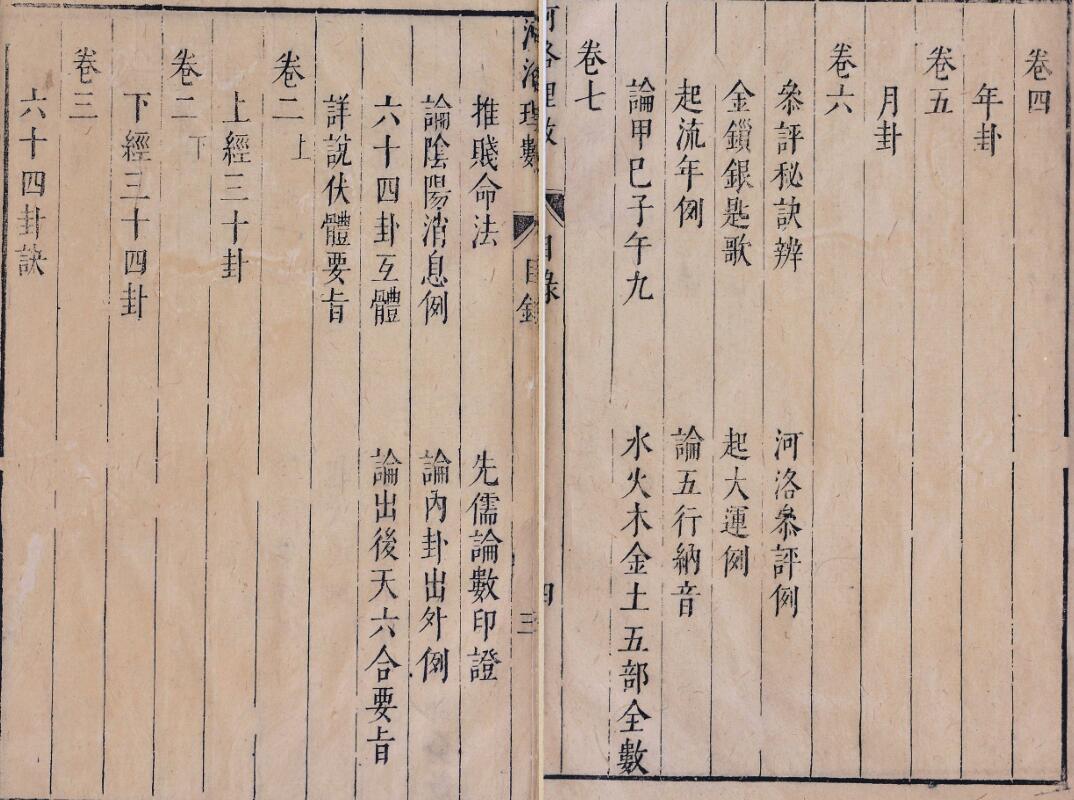 卷四
年卦
卷五
月卦
卷六
叅評秘訣辨
河洛叅評例
金鎖銀匙歌
起大運例
起流年例
論五行納音
論甲巳子午九
水火木金土五部全數
卷七
河洛理數
目錄
四
河洛理數
目錄
三
推賤命法
先儒論數印證
論陰陽消息例
論內卦出外例
六十四卦互體
論出後天六合要旨
詳說伏體要旨
卷二上
上經三十卦
卷二下
下經三十四卦
卷三
六十四卦訣